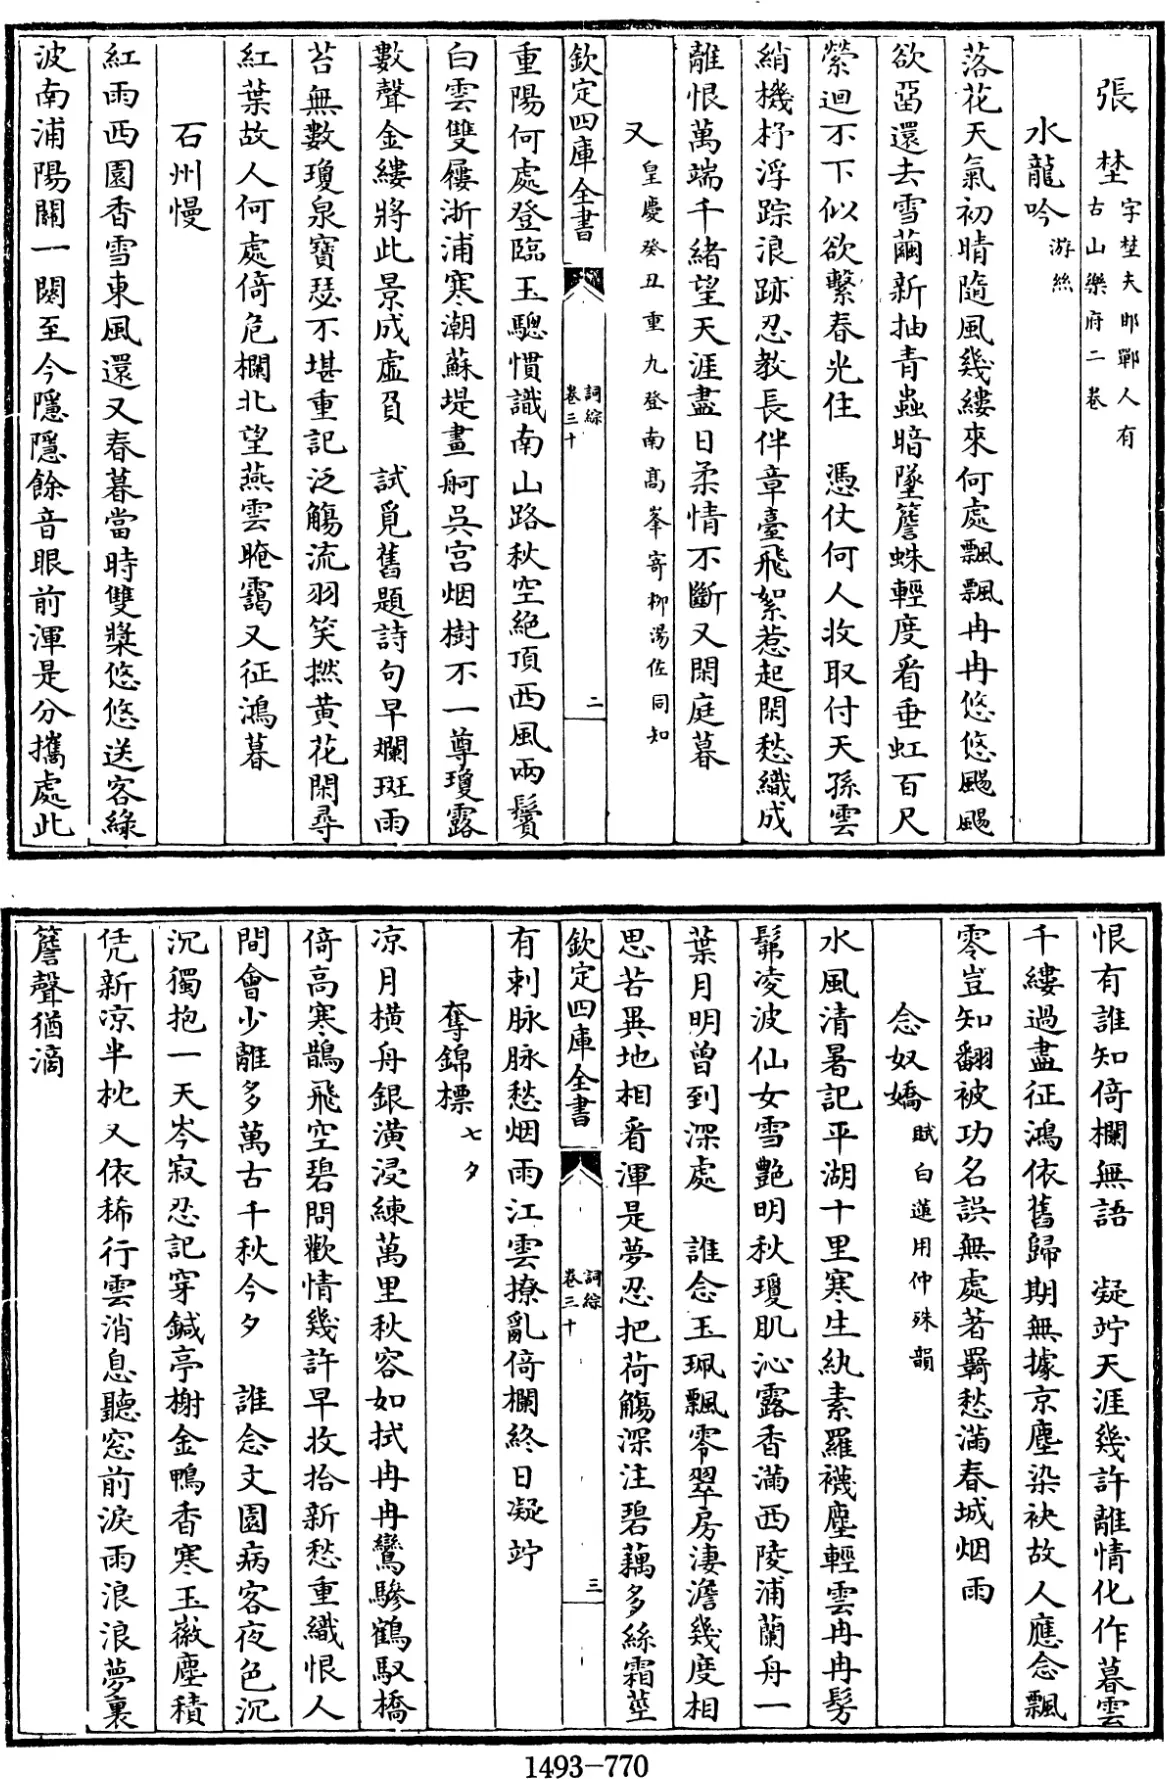 張埜字埜夫邯鄲人有古山樂府二卷
水龍吟游絲
落花天氣初晴隨風幾縷來何處飄飄冉冉悠悠颺颺
欲畱還去雪繭新抽青蟲暗墜簷蛛輕度看垂虹百尺
縈迴不下似欲繫春光住　憑仗何人收取付天孫雲
綃機杼浮踪浪跡忍教長伴章臺飛絮惹起閒愁織成
離恨萬端千緒望天涯盡日柔情不斷又閒庭暮
又皇慶癸丑重九登南髙峯寄柳湯佐同知
欽定四庫全書
詞綜
卷三十
二
重陽何處登臨玉驄慣識南山路秋空絶頂西風兩鬢
白雲雙屨浙浦寒潮蘇堤畫舸吳宮烟樹不一尊瓊露
數聲金縷將此景成虛負　試覓舊題詩句早斕斑雨
苔無數瓊泉寶瑟不堪重記泛觴流羽笑撚黄花閒尋
紅葉故人何處倚危欄北望燕雲晻靄又征鴻暮
石州慢
紅雨西園香雪東風還又春暮當時雙槳悠悠送客綠
波南浦陽關一闋至今隱隱餘音眼前渾是分攜處此
恨有誰知倚欄無語　凝竚天涯幾許離情化作暮雲
千縷過盡征鴻依舊歸期無據京塵染袂故人應念飄
零豈知翻被功名誤無處著羇愁滿春城烟雨
念奴嬌賦白蓮用仲殊韻
水風清暑記平湖十里寒生紈素羅襪塵輕雲冉冉髣
髴凌波仙女雪艷明秋瓊肌沁露香滿西陵浦蘭舟一
葉月明曾到深處　誰念玉珮飄零翠房淒澹幾度相
思苦異地相看渾是夢忍把荷觴深注碧藕多絲霜莖
欽定四庫全書
詞綜
卷三十
三
有刺脉脉愁烟雨江雲撩亂倚欄終日凝竚
奪錦標七夕
凉月横舟銀潢浸練萬里秋容如拭冉冉鸞驂鶴馭橋
倚高寒鵲飛空碧問歡情幾許早收拾新愁重織恨人
間會少離多萬古千秋今夕　誰念文園病客夜色沉
沉獨抱一天岑寂忍記穿鍼亭榭金鴨香寒玉徽塵積
凭新凉半枕又依稀行雲消息聽窓前淚雨浪浪夢裏
簷聲猶滴
1493-770